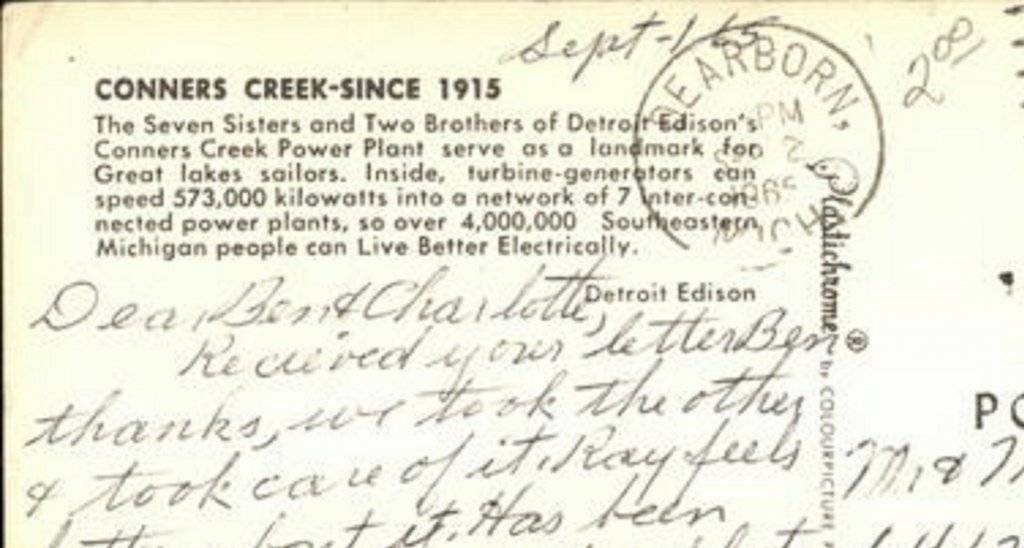 Sept-1 65
2 00
DEARBORN,
PM
2
1965
MICH
CONNERS CREEK-SINCE 1915
The Seven Sisters and Two Brothers of Detroit Edison's
Conners Creek Power Plant serve as a landmark for
Great lakes sailors. Inside, turbine-generators can
speed 573,000 kilowatts into a network of 7 inter-con-
nected power plants, so over 4,000,000 Southeastern
Michigan people can Live Better Electrically.
Detroit Edison
Dear Ben & Charlotte,
Recieved your letter Ben
thanks, we took the other
& took care of it. Ray feels
it. Has been
Plastichrome ® by COLOURPICTURE
PO
Mr & M